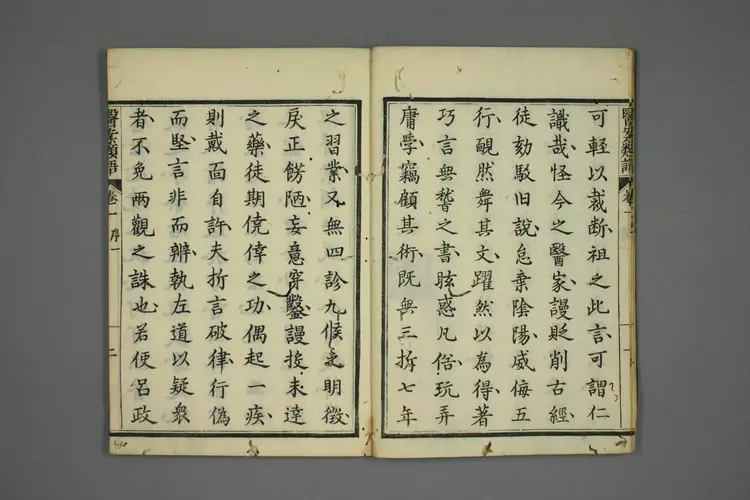 醫案類語 卷一
可輕以裁断祖之此言可謂仁
識哉怪今之醫家謾貶削古經
徒劾駁旧說怠棄陰陽威侮五
行靦然舞其文躍然以為得著
巧言無稽之書眩惑凡俗玩弄
庸学竊顧其術既無三折七年
之習業又無四診九候之明徴
戻正餝陋妄意穿鑿謾投未達
之藥徒期僥倖之功偶起一疾
則戴面自許夫折言破律行偽
而堅言非而辨執左道以疑衆
者不免兩觀之誅也若使呂政
醫案類語 卷一 序一 二